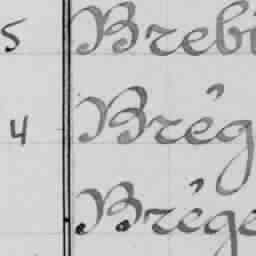 5 Brebi
4 Brég
Brége